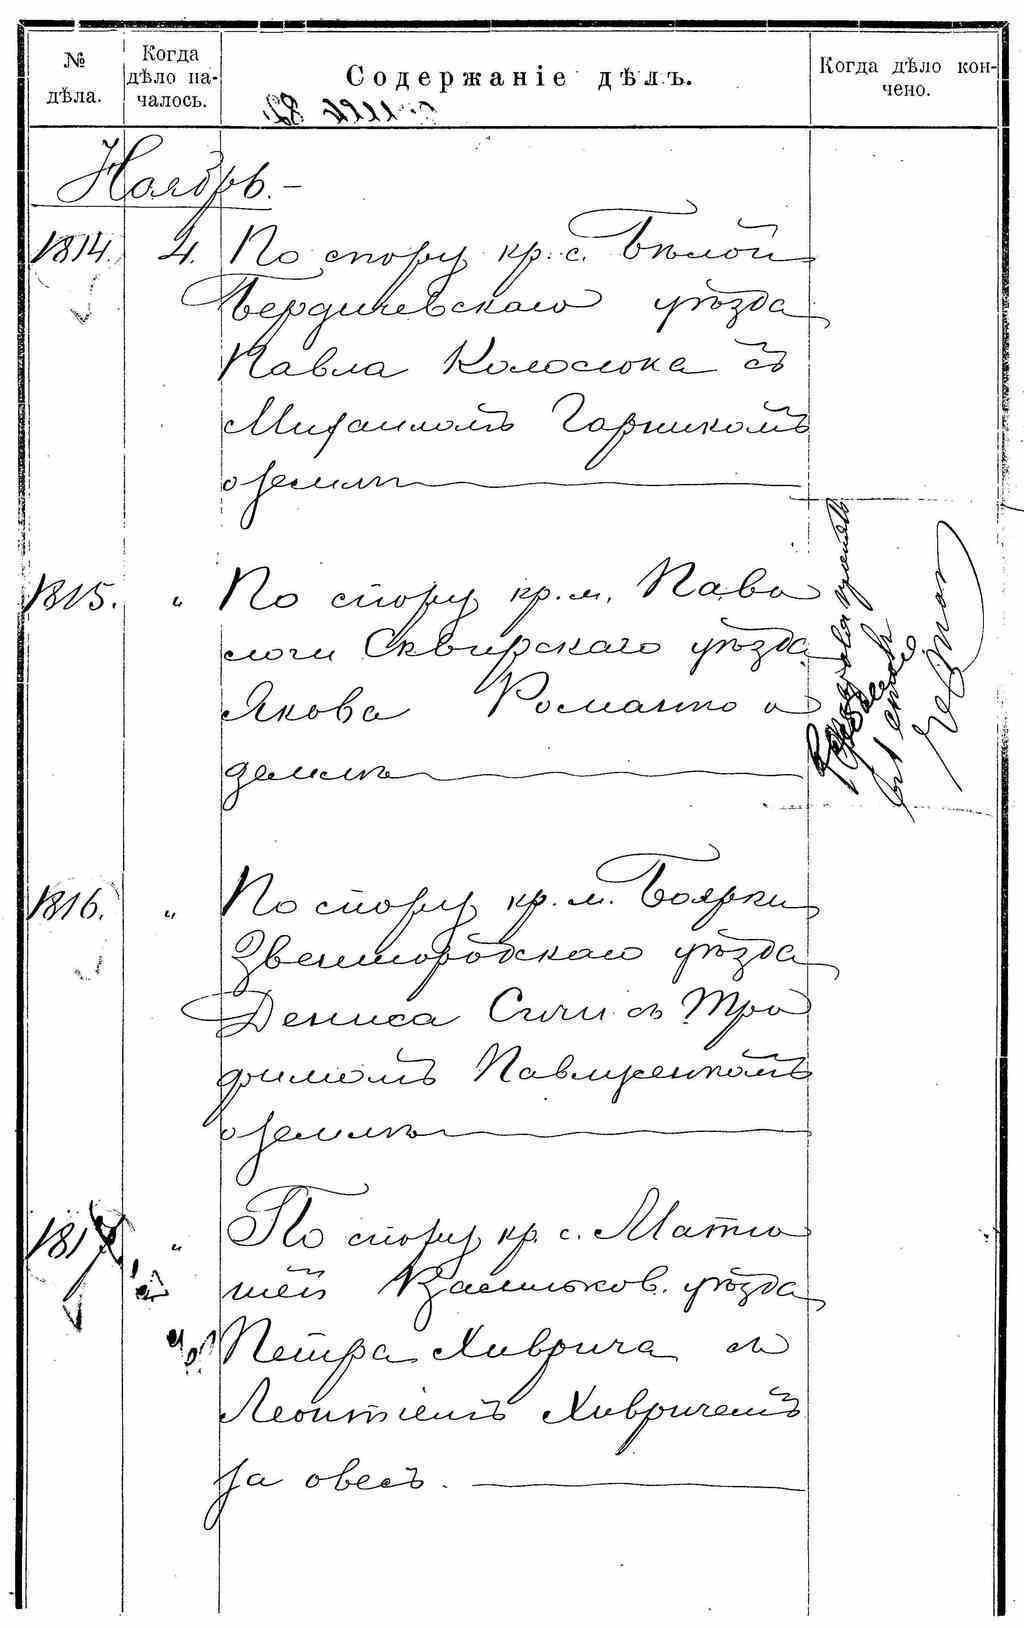 № дѣла.
Когда дѣло началось.
Содержаніе дѣлъ.
Когда дѣло кончено.
Ноябрь.-
1814. 4. По спору кр. с. Бѣлой
Бердичевскаго уѣзда
Павла Колосюка съ
Михаиломъ Горникомъ
о землѣ
1815. „ По спору кр. м. Паво
лочи Сквирскаго уѣзда
Якова Романко о
землѣ
1816. „ По спору кр. м. Боярки
Звенигородскаго уѣзда
Дениса Сичи съ Тро
фимомъ Павлуенкомъ
о землѣ
1817 „ По спору кр. с. Матю
шей Васильков. уѣзда
Петра Хиврича съ
Леонтіемъ Хивричемъ
за овесъ.